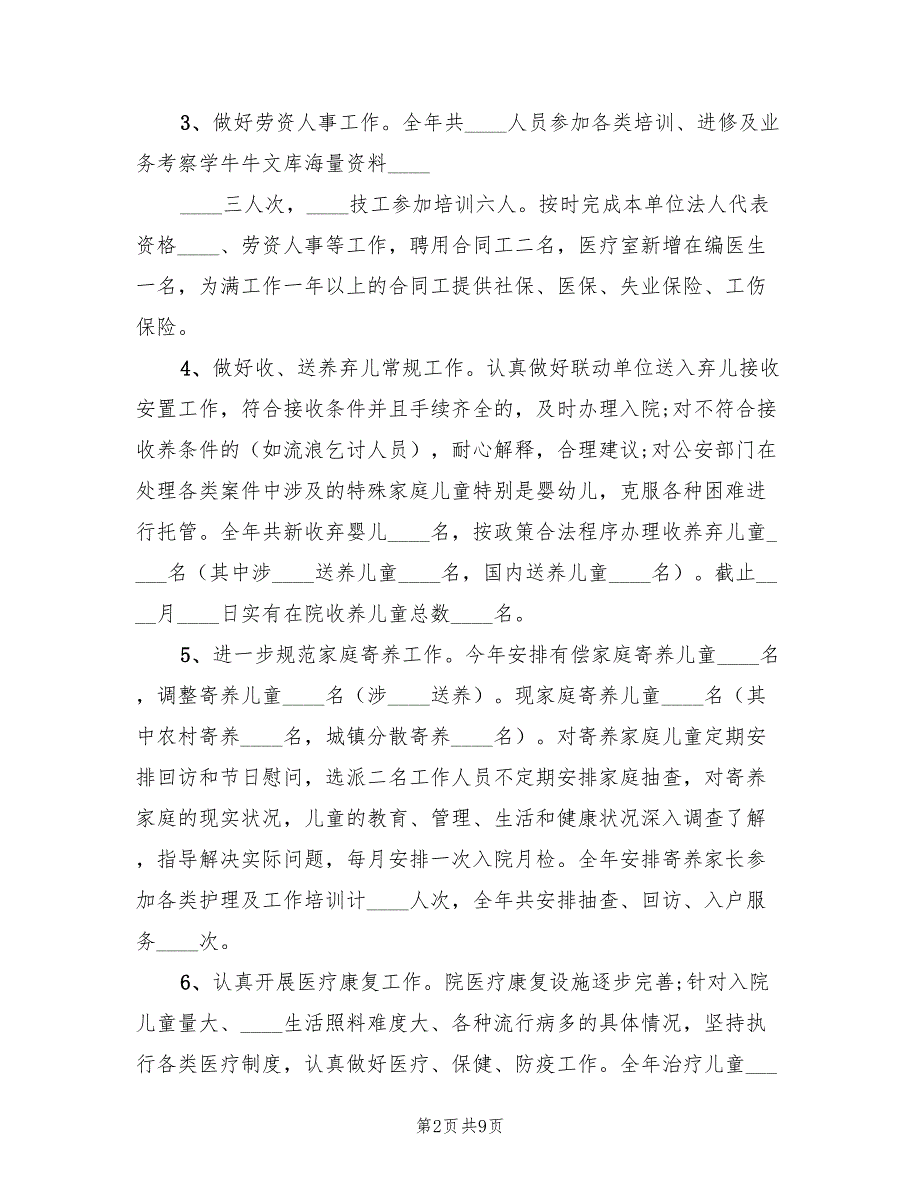 3、做好劳资人事工作。全年共____人员参加各类培训、进修及业
务考察学牛牛文库海量资料____
____三人次，____技工参加培训六人。按时完成本单位法人代表
资格____、劳资人事等工作，聘用合同工二名，医疗室新增在编医生
一名，为满工作一年以上的合同工提供社保、医保、失业保险、工伤
保险。
4、做好收、送养弃儿常规工作。认真做好联动单位送入弃儿接收
安置工作，符合接收条件并且手续齐全的，及时办理入院;对不符合接
收养条件的（如流浪乞讨人员），耐心解释，合理建议;对公安部门在
处理各类案件中涉及的特殊家庭儿童特别是婴幼儿，克服各种困难进
行托管。全年共新收弃婴儿____名，按政策合法程序办理收养弃儿童_
___名（其中涉____送养儿童____名，国内送养儿童____名）。截止__
__月____日实有在院收养儿童总数____名。
5、进一步规范家庭寄养工作。今年安排有偿家庭寄养儿童____名
，调整寄养儿童____名（涉____送养）。现家庭寄养儿童____名（其
中农村寄养____名，城镇分散寄养____名）。对寄养家庭儿童定期安
排回访和节日慰问，选派二名工作人员不定期安排家庭抽查，对寄养
家庭的现实状况，儿童的教育、管理、生活和健康状况深入调查了解
，指导解决实际问题，每月安排一次入院月检。全年安排寄养家长参
加各类护理及工作培训计____人次，全年共安排抽查、回访、入户服
务____次。
6、认真开展医疗康复工作。院医疗康复设施逐步完善;针对入院
儿童量大、____生活照料难度大、各种流行病多的具体情况，坚持执
行各类医疗制度，认真做好医疗、保健、防疫工作。全年治疗儿童___
第2页 共9页